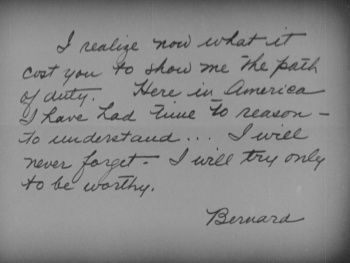 I realize now what it
cost you to show me the path
of duty. Here in America
I have had time to reason -
to understand... I will
never forget - I will try only
to be worthy.
Bernard